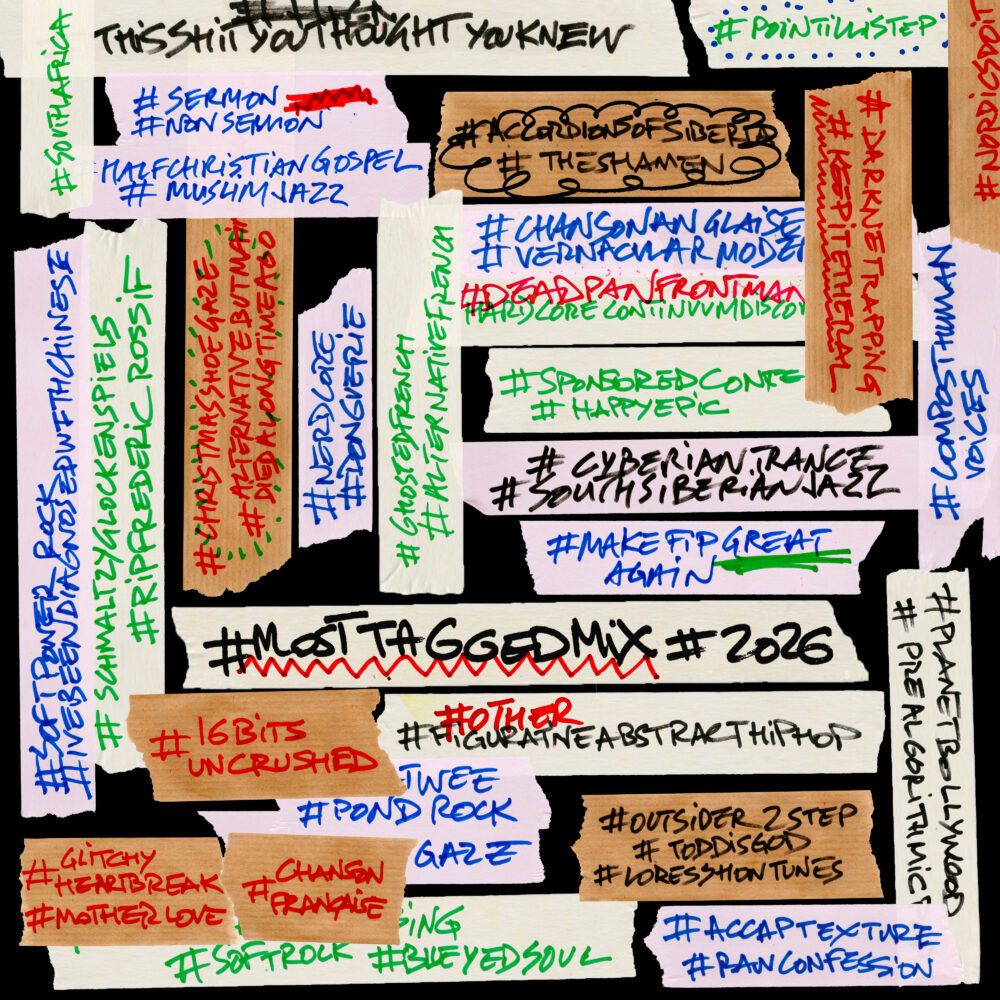 THIS SHIT YOU THOUGHT YOU KNEW
# POINTILLISTEP
#SOUTHAFRICA
# SERMON
#NONSERMON
HALFCHRISTIANGOSPEL
# MUSLIMJAZZ
#ACCORDIONSOFSIBERIA
# THESHAMEN
# DARKNETTRAPPING
# KEEPITETHEREAL
#CHANSONANGLAISE
#VERNACULARMODE
#DEADPANFRONTMAN
HARDCORECONTINUUMDISCO
#SPONSOREDCONTE
# HAPPYEPIC
# CYBERIANTRANCE
# SOUTHSIBERIANJAZZ
#MAKEFIPGREAT
AGAIN
#COMPOSTHUMAN
VOICES
#SOFTPOWERROCK
#IVEBEENDIAGNOSEDWITHCHINESE
# SCHMALTZYGLOCKENSPIELS
#RIPFREDERICROSSIF
#CHRISTMASSHOEGAZE
#ALTERNATIVEBUTMAN
#DIEDALONGTIMEAGO
#NERDCORE
#GHOSTEDFRENCH
#ALTERNATIVEFRENCH
#MOSTTAGGEDMIX #2026
#OTHER
#FIGURATIVEABSTRACTHIPHOP
#PLANETBOLLYWOOD
# PREALGORITHMIC
# 16BITS
UNCRUSHED
TWEE
#POND ROCK
GAZE
#OUTSIDER 2STEP
# TODDISGOD
#GLITCHY
HEARTBREAK
#MOTHERLOVE
# CHANSON
FRANÇAISE
ING
#SOFTROCK #BLEYEDSOUL
#ACCAPTEXTURE
#RAWCONFESSION